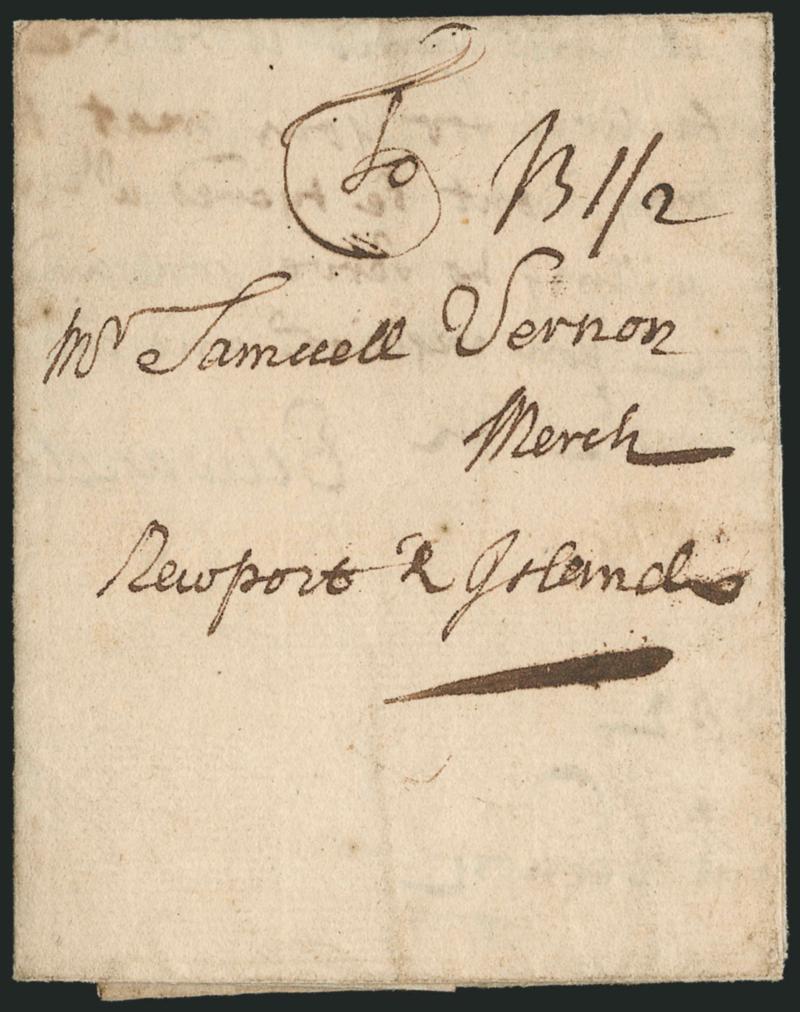 To B 1/2
Mr Samuell Vernon
Merch
Newport R Island